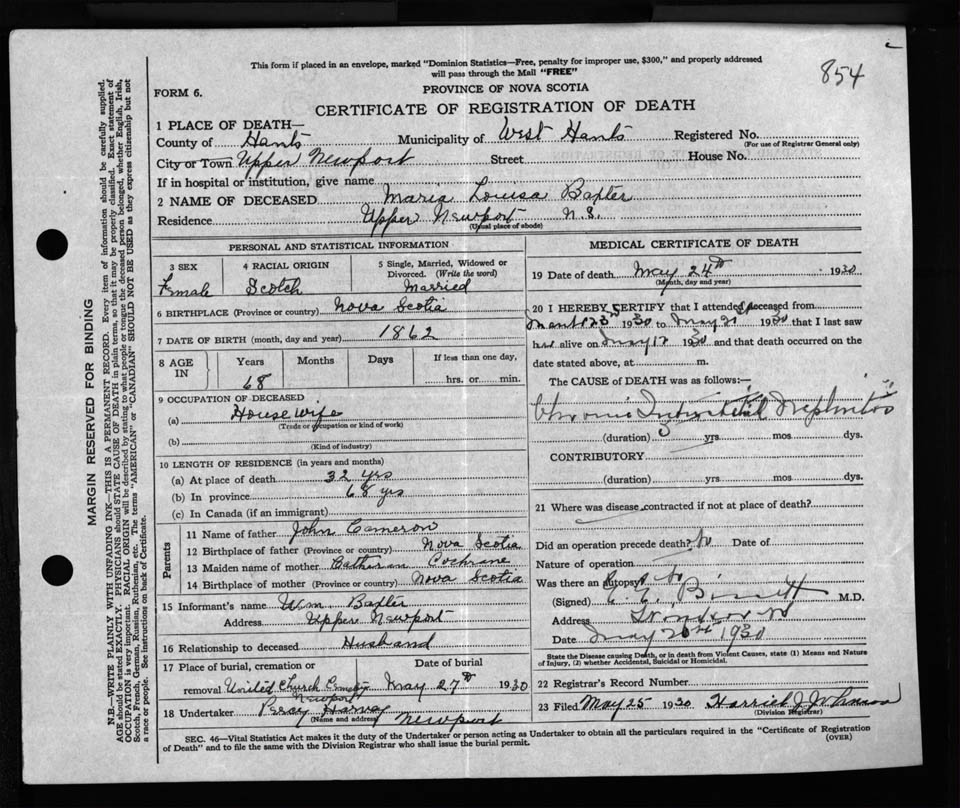 This form if placed in an envelope, marked "Dominion Statistics—Free, penalty for improper use, $300," and properly addressed
will pass through the Mail "FREE"
854
FORM 6.
PROVINCE OF NOVA SCOTIA
CERTIFICATE OF REGISTRATION OF DEATH
1 PLACE OF DEATH—
County of Hants Municipality of West Hants Registered No.
(For use of Registrar General only)
City or Town Upper Newport Street House No.
If in hospital or institution, give name
2 NAME OF DECEASED Maria Louisa Baxter
Residence Upper Newport N.S.
(Usual place of abode)
PERSONAL AND STATISTICAL INFORMATION
3 SEX
Female
4 RACIAL ORIGIN
Scotch
5 Single, Married, Widowed or
Divorced. (Write the word)
Married
6 BIRTHPLACE (Province or country) Nova Scotia
7 DATE OF BIRTH (month, day and year) 1862
8 AGE IN
Years
68
Months
Days
If less than one day,
hrs. or min.
9 OCCUPATION OF DECEASED
(a) Housewife
(Trade or occupation or kind of work)
(b)
(Kind of industry)
10 LENGTH OF RESIDENCE (in years and months)
(a) At place of death 32 yrs
(b) In province 68 yrs
(c) In Canada (if an immigrant)
Parents
11 Name of father John Cameron
12 Birthplace of father (Province or country) Nova Scotia
13 Maiden name of mother Cochrane
14 Birthplace of mother (Province or country) Nova Scotia
15 Informant's name Wm. Baxter
Address Upper Newport
16 Relationship to deceased Husband
17 Place of burial, cremation or
removal United Church Cemetery
Newport
Date of burial
May 27th 1930
18 Undertaker Percy Harvey Newport
(Name and address)
MEDICAL CERTIFICATE OF DEATH
19 Date of death May 24th 1930
(Month, day and year)
20 I HEREBY CERTIFY that I attended deceased from
23 1930 to May 1930 that I last saw
her alive on May 1930 and that death occurred on the
date stated above, at m.
The CAUSE of DEATH was as follows:—
Chronic Interstitial Nephritis
(duration) yrs mos dys.
CONTRIBUTORY
(duration) yrs mos dys.
21 Where was disease contracted if not at place of death?
Did an operation precede death? No Date of
Nature of operation
Was there an autopsy? No
(Signed) M.D.
Address Windsor
Date May 1930
State the Disease causing Death, or in death from Violent Causes, state (1) Means and Nature
of Injury, (2) whether Accidental, Suicidal or Homicidal.
22 Registrar's Record Number
23 Filed May 25 1930 Harriet J.
(Division Registrar)
SEC. 46—Vital Statistics Act makes it the duty of the Undertaker or person acting as Undertaker to obtain all the particulars required in the "Certificate of Registration
of Death" and to file the same with the Division Registrar who shall issue the burial permit.
(OVER)
MARGIN RESERVED FOR BINDING
N.B.—WRITE PLAINLY WITH UNFADING INK—THIS IS A PERMANENT RECORD. Every item of information should be carefully supplied.
AGE should be stated EXACTLY. PHYSICIANS should STATE CAUSE OF DEATH in plain terms, so that it may be properly classified. Exact statement of
OCCUPATION is very important. RACIAL ORIGIN will be described by stating to what people or tongue the deceased person belonged, whether English, Irish,
Scotch, French, German, Russian, Ruthenian, etc. The terms "AMERICAN" or "CANADIAN" SHOULD NOT BE USED as they express citizenship but not
a race or people. See instructions on back of Certificate.